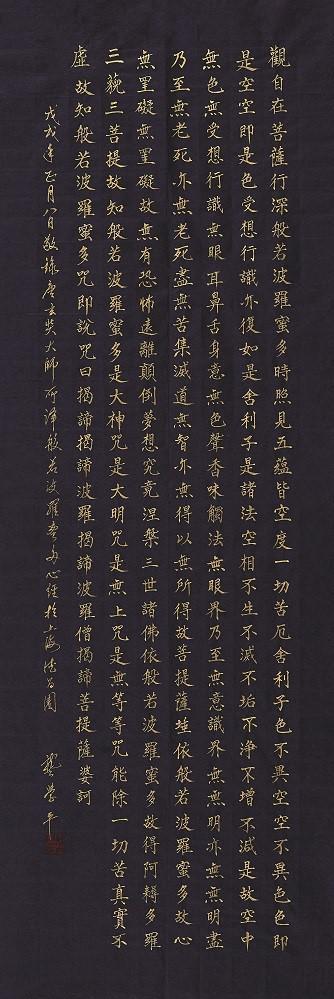 觀自在菩薩行深般若波羅蜜多時照見五蘊皆空度一切苦厄舍利子色不異空空不異色色即
是空空即是色受想行識亦復如是舍利子是諸法空相不生不滅不垢不淨不增不減是故空中
無色無受想行識無眼耳鼻舌身意無色聲香味觸法無眼界乃至無意識界無無明亦無無明盡
乃至無老死亦無老死盡無苦集滅道無智亦無得以無所得故菩提薩埵依般若波羅蜜多故心
無罣礙無罣礙故無有恐怖遠離顛倒夢想究竟涅槃三世諸佛依般若波羅蜜多故得阿耨多羅
三藐三菩提故知般若波羅蜜多是大神咒是大明咒是無上咒是無等等咒能除一切苦真實不
虛故知般若波羅蜜多咒即說咒曰揭諦揭諦波羅揭諦波羅僧揭諦菩提薩婆訶
戊戌年正月八日敬錄唐玄奘大師所譯般若波羅蜜多心經於上海 龔學平